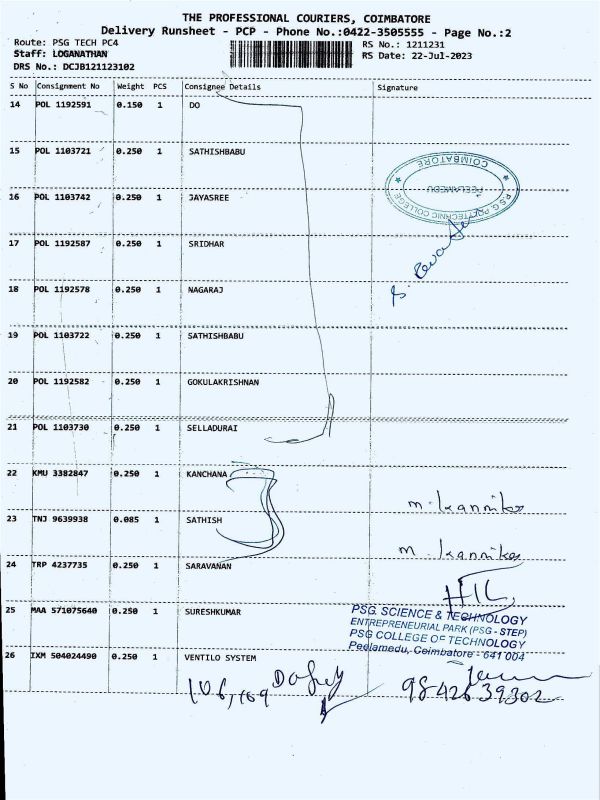 THE PROFESSIONAL COURIERS, COIMBATORE
Delivery Runsheet - PCP - Phone No.:0422-3505555 - Page No.:2
Route: PSG TECH PC4
Staff: LOGANATHAN
DRS No.: DCJB121123102
RS No.: 1211231
RS Date: 22-Jul-2023
S No Consignment No Weight PCS Consignee Details Signature
14 POL 1192591 0.150 1 DO
15 POL 1103721 0.250 1 SATHISHBABU
COIMBATORE
PEELAMEDU
P.S.G. POLYTECHNIC COLLEGE
16 POL 1103742 0.250 1 JAYASREE
17 POL 1192587 0.250 1 SRIDHAR
18 POL 1192578 0.250 1 NAGARAJ
19 POL 1103722 0.250 1 SATHISHBABU
20 POL 1192582 0.250 1 GOKULAKRISHNAN
21 POL 1103730 0.250 1 SELLADURAI
22 KMU 3382847 0.250 1 KANCHANA
23 TNJ 9639938 0.085 1 SATHISH
24 TRP 4237735 0.250 1 SARAVANAN
25 MAA 571075640 0.250 1 SURESHKUMAR
PSG. SCIENCE & TECHNOLOGY
ENTREPRENEURIAL PARK (PSG - STEP)
PSG COLLEGE OF TECHNOLOGY
Peelamedu, Coimbatore - 641 004
26 IXM 504024490 0.250 1 VENTILO SYSTEM
9842639302